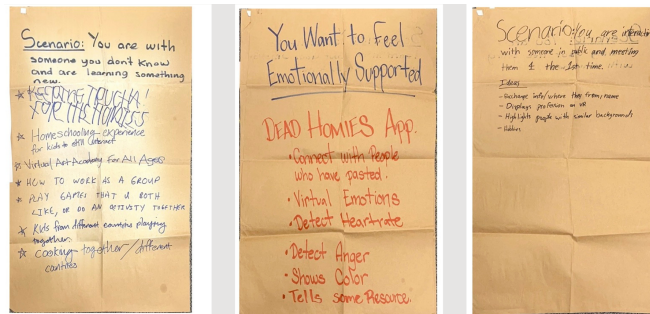 Scenario: You are with
someone you don't know
and are learning something
new.
Homeschooling experience
for kids to still interact
Virtual Art Academy For All Ages
HOW TO WORK AS A GROUP
PLAY GAMES THAT U BOTH
LIKE, OR DO AN ACTIVITY TOGETHER
Kids from different countries playing
together
cooking together/different
You Want to Feel
Emotionally Supported
DEAD HOMIES App.
• Connect with People
who have pasted.
• Virtual Emotions
• Detect Heartrate
• Detect Anger
• Shows Color
• Tells some Resource.
Scenario: You are
with someone in public and meeting
them 4 the 1st time.
Ideas
- Exchange info/where they from/name
- Displays profession on VR
- Highlights people with similar backgrounds